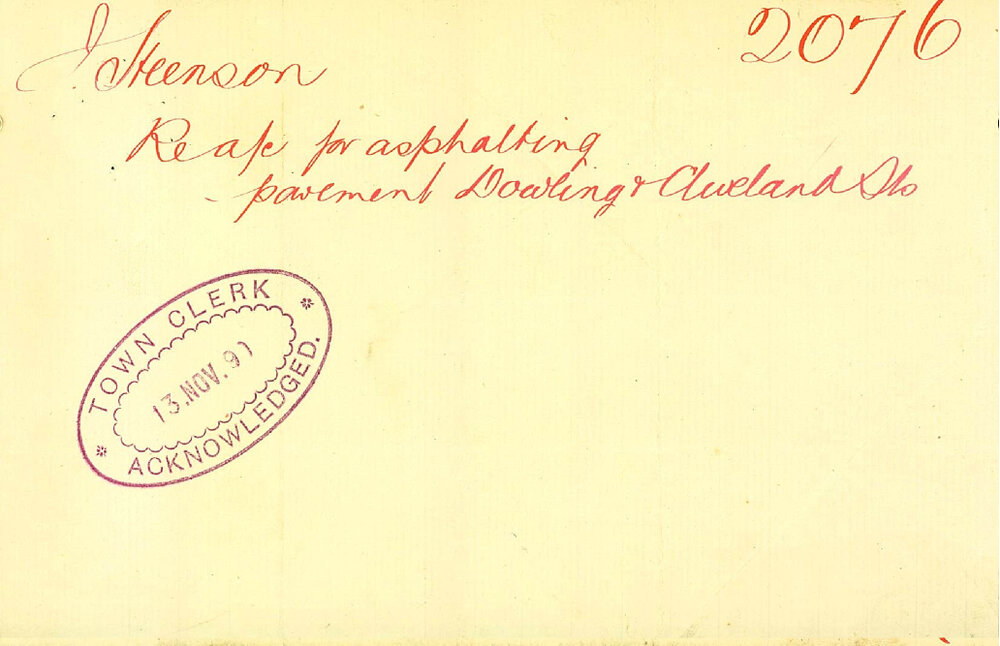 2076
J. Steenson
Re a/c for asphalting
pavement Dowling & Cleveland Sts
TOWN CLERK
13.NOV.91
ACKNOWLEDGED.